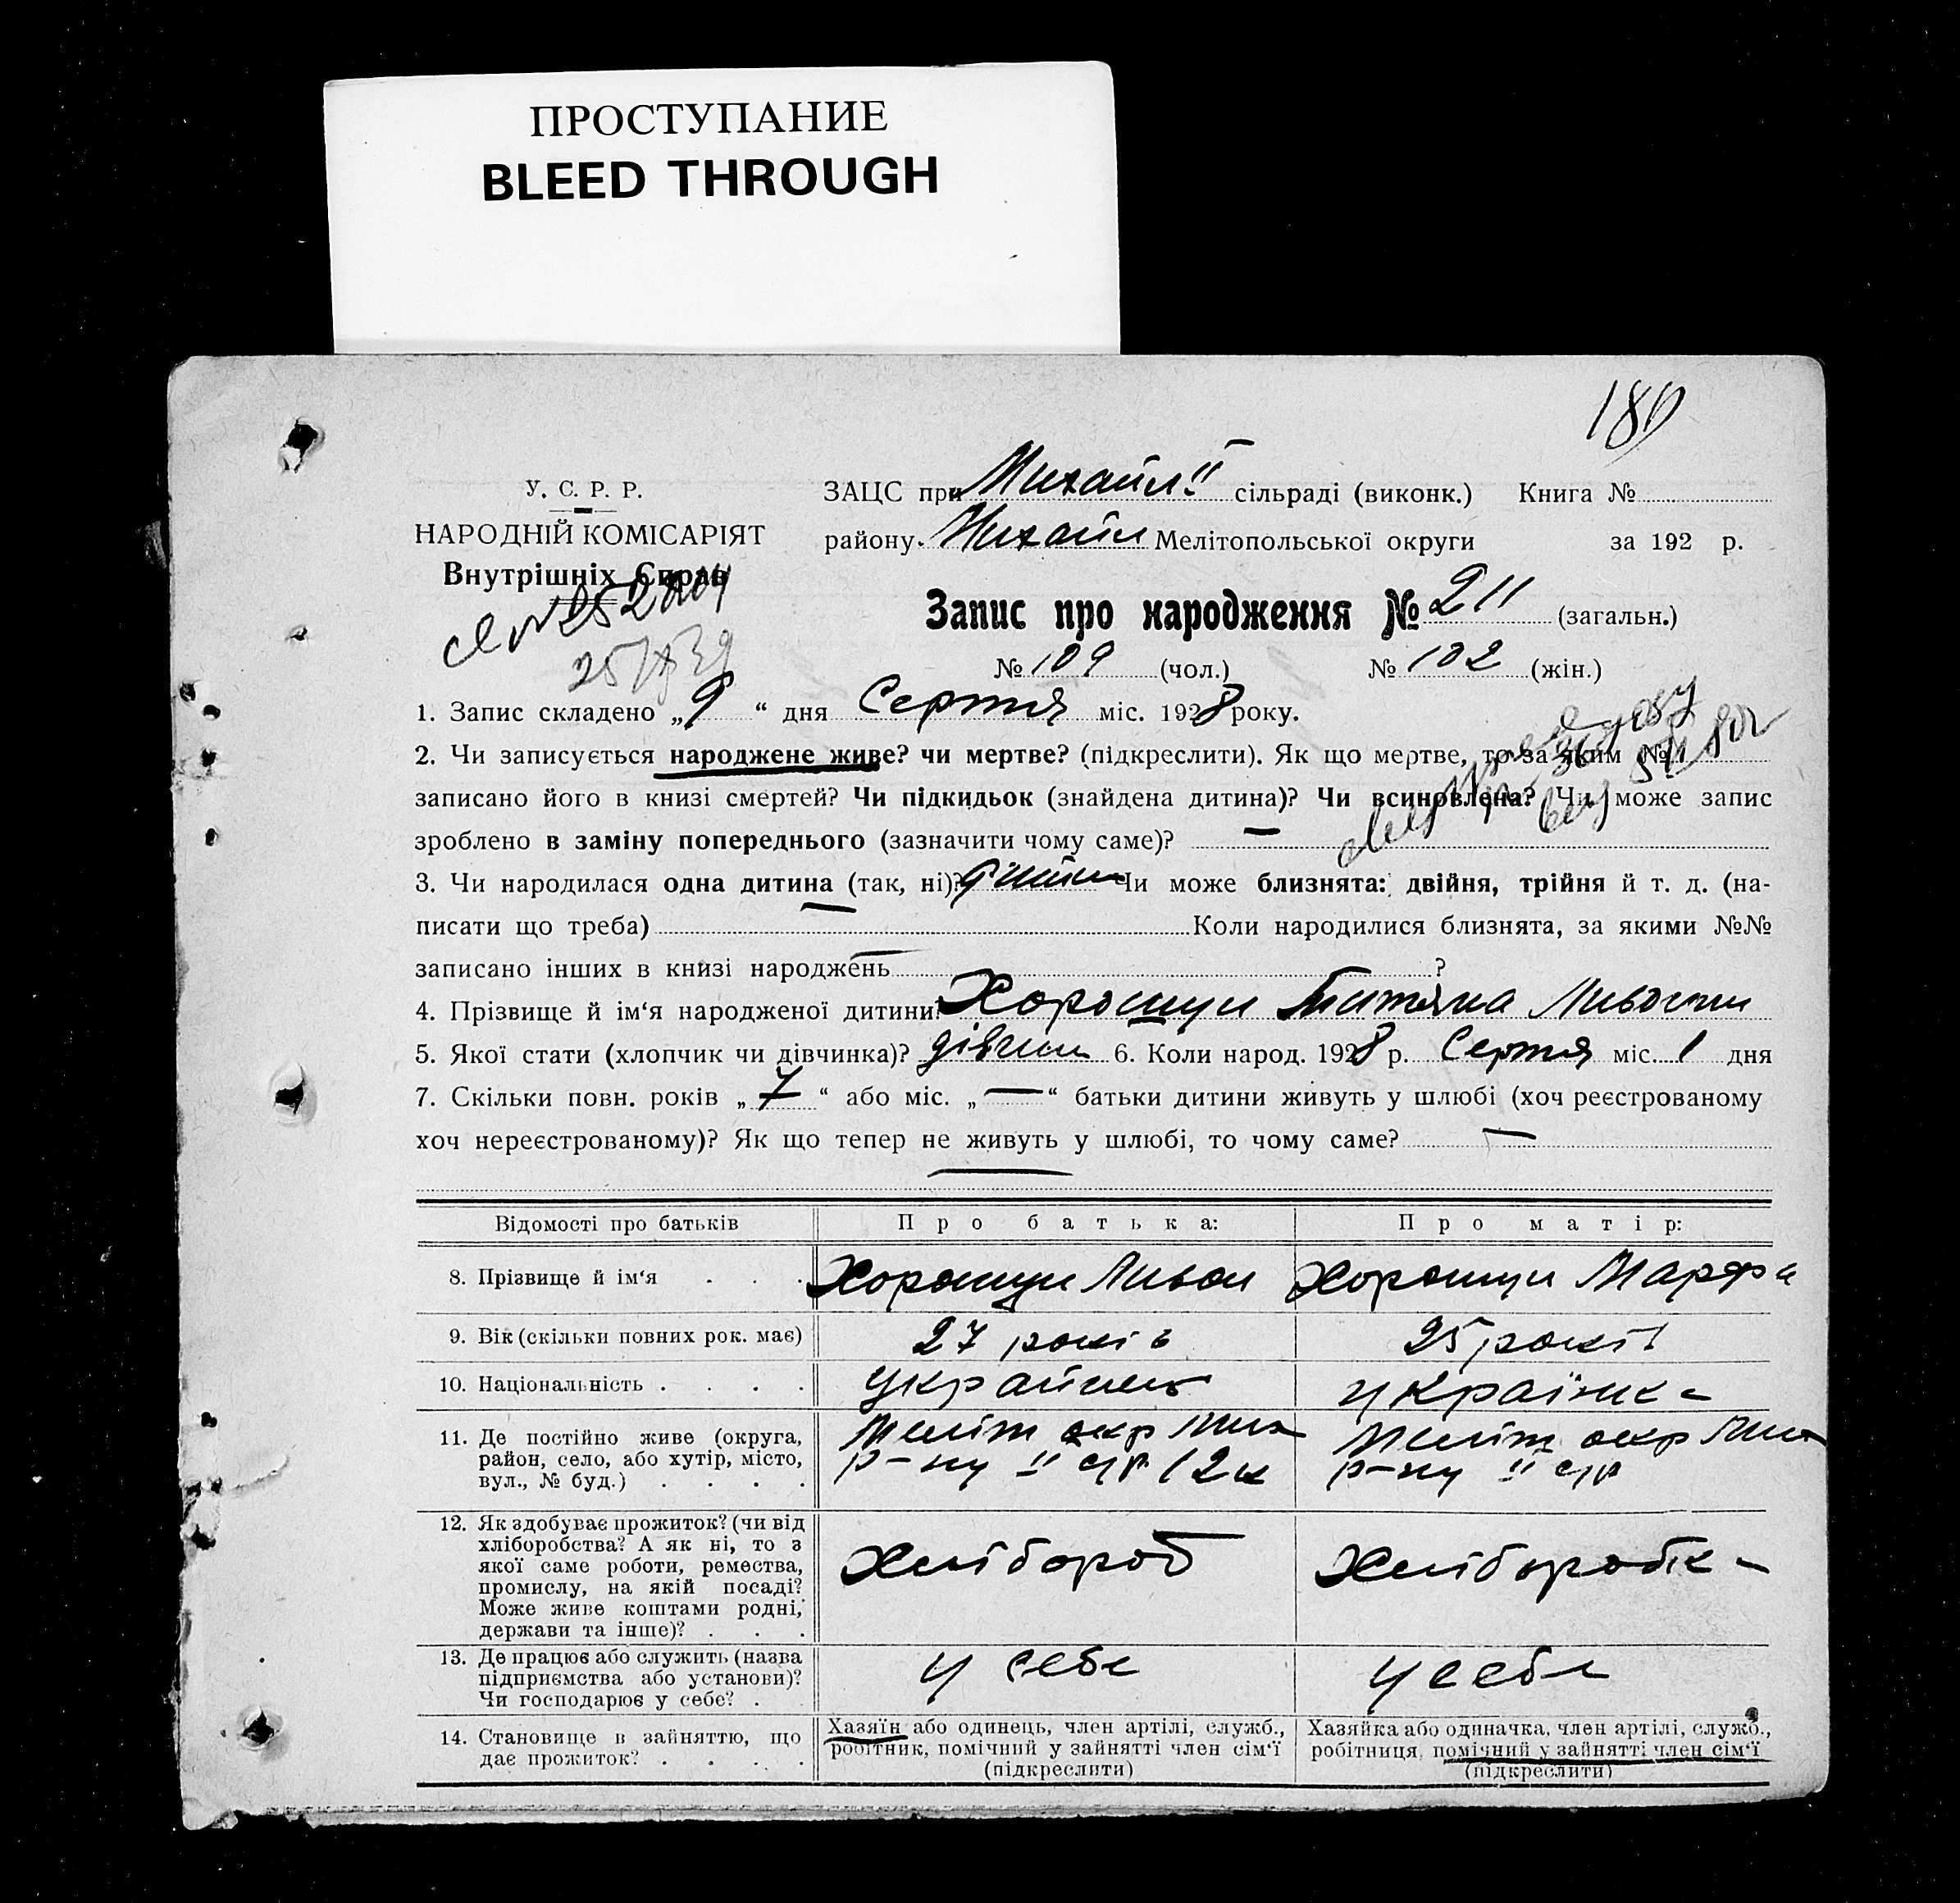 ПРОСТУПАНИЕ
BLEED THROUGH
У. С. Р. Р.
НАРОДНІЙ КОМІСАРІЯТ
Внутрішніх Справ
ЗАЦС при Михайл. ІІ сільраді (виконк.) Книга №
району Михайл Мелітопольської округи за 192 р.
Запис про народження № 211 (загальн.)
№ 109 (чол.) № 102 (жін.)
1. Запис складено „9“ дня Серпня міс. 1928 року.
2. Чи записується народжене живе? чи мертве? (підкреслити). Як що мертве, то за яким №
записано його в книзі смертей? Чи підкидьок (знайдена дитина)? Чи всиновлена? Чи може запис
зроблено в заміну попереднього (зазначити чому саме)? —
3. Чи народилася одна дитина (так, ні)? Чи може близнята: двійня, трійня й т. д. (на-
писати що треба) — Коли народилися близнята, за якими №№
записано інших в книзі народжень — ?
4. Прізвище й ім‘я народженої дитини? Хорошун Титяна
5. Якої стати (хлопчик чи дівчинка)? дівчин 6. Коли народ. 1928 р. Серпня міс. 1 дня
7. Скільки повн. років „7“ або міс. „—“ батьки дитини живуть у шлюбі (хоч реєстрованому
хоч нереєстрованому)? Як що тепер не живуть у шлюбі, то чому саме? —
Відомості про батьків Про батька: Про матір:
8. Прізвище й ім‘я . . . Хорошун Ливон Хорошун Марфа
9. Вік (скільки повних рок. має) 27 років 25 років
10. Національність . . . . українець українка
11. Де постійно живе (округа, Меліт окр Мих Меліт окр Мих
район, село, або хутір, місто, р-ну ІІ с/р р-ну ІІ с/р
вул., № буд.) . . . .
12. Як здобуває прожиток? (чи від
хліборобства? А як ні, то з
якої саме роботи, ремества, Хлібороб Хліборобка
промислу, на якій посаді?
Може живе коштами родні,
держави та інше)? . . .
13. Де працює або служить (назва у себе у себе
підприємства або установи)?
Чи господарює у себе? .
14. Становище в зайняттю, що Хазяїн або одинець, член артілі, служб., Хазяйка або одиначка, член артілі, служб.,
дає прожиток? . . . . робітник, помічний у зайнятті член сім‘ї робітниця, помічний у зайнятті член сім‘ї
(підкреслити) (підкреслити)